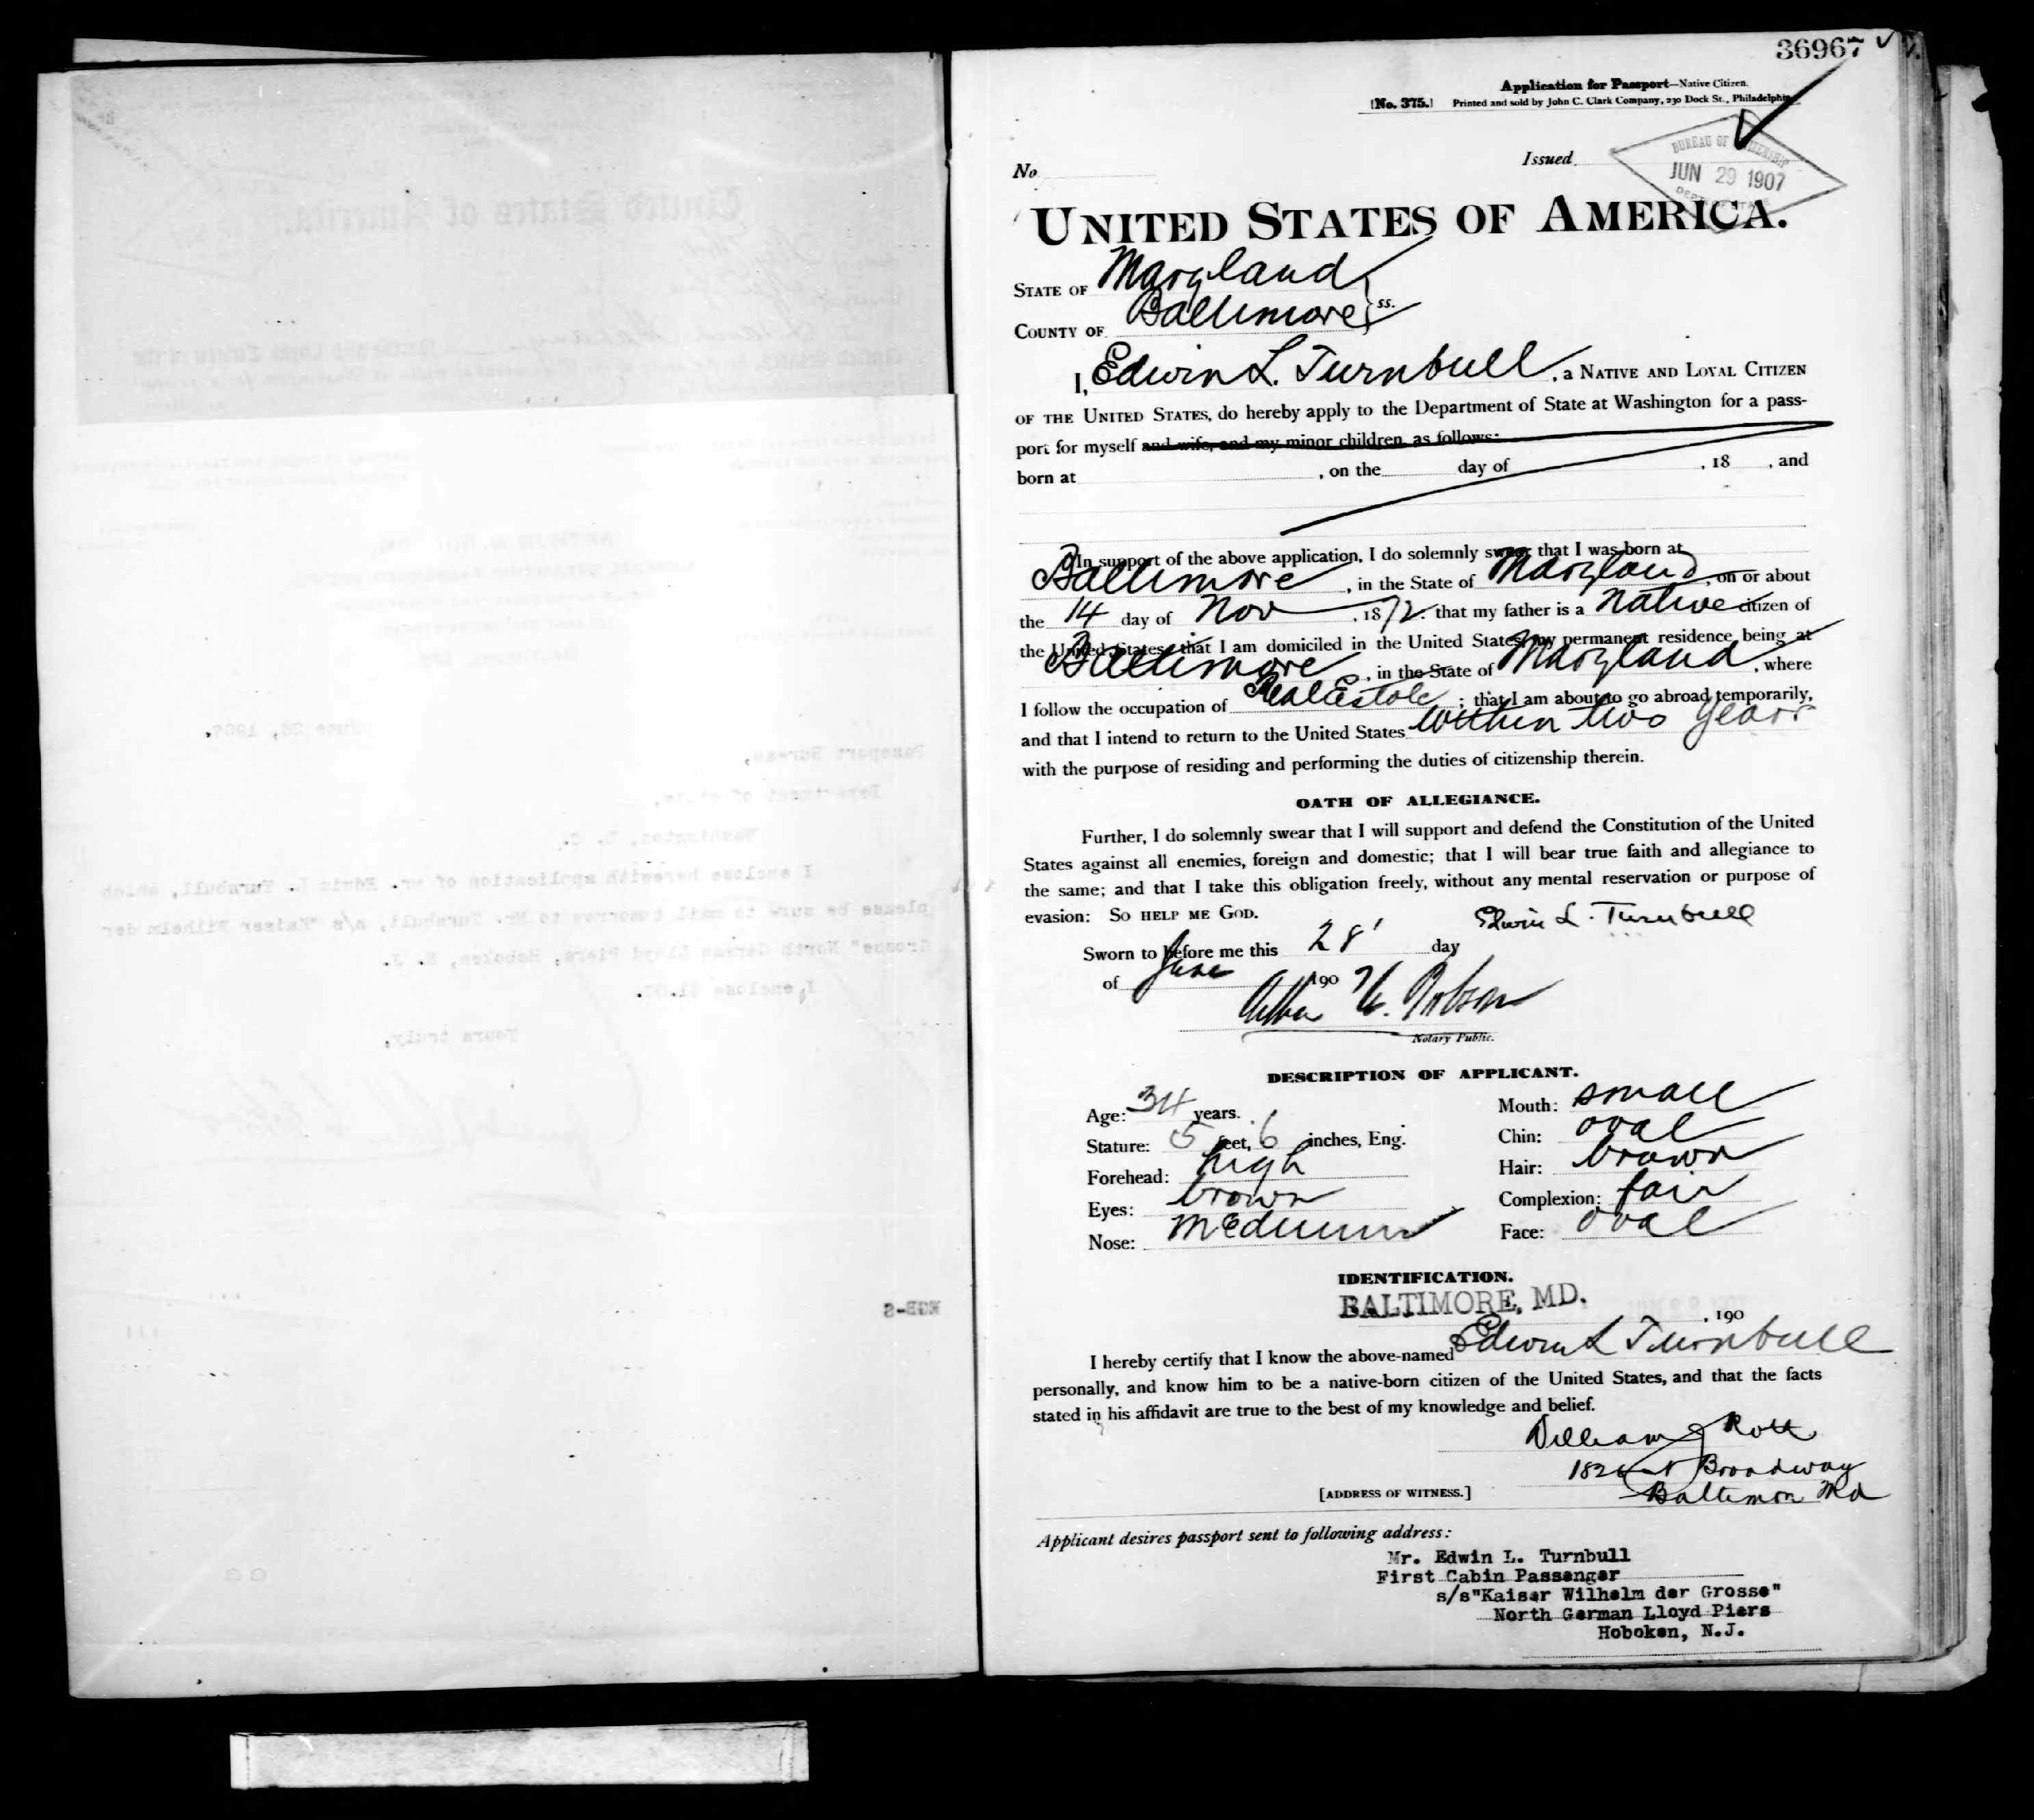 36967
Application for Passport—Native Citizen.
[No. 375.] Printed and sold by John C. Clark Company, 230 Dock St., Philadelphia
No. Issued
BUREAU OF CITIZENSHIP
JUN 29 1907
DEPT OF STATE
UNITED STATES OF AMERICA.
STATE OF Maryland
COUNTY OF Baltimore ss.
I, Edwin L. Turnbull, a NATIVE AND LOYAL CITIZEN
OF THE UNITED STATES, do hereby apply to the Department of State at Washington for a pass-
port for myself and wife, and my minor children, as follows:
born at , on the day of , 18 , and
In support of the above application, I do solemnly swear that I was born at
Baltimore, in the State of Maryland, on or about
the 14 day of Nov, 1872. that my father is a native citizen of
the United States; that I am domiciled in the United States, my permanent residence being at
Baltimore, in the State of Maryland, where
I follow the occupation of Real Estate; that I am about to go abroad temporarily,
and that I intend to return to the United States within two years
with the purpose of residing and performing the duties of citizenship therein.
OATH OF ALLEGIANCE.
Further, I do solemnly swear that I will support and defend the Constitution of the United
States against all enemies, foreign and domestic; that I will bear true faith and allegiance to
the same; and that I take this obligation freely, without any mental reservation or purpose of
evasion: SO HELP ME GOD.
Edwin L. Turnbull
Sworn to before me this 28' day
of June 1907
Notary Public.
DESCRIPTION OF APPLICANT.
Age: 34 years. Mouth: small
Stature: 5 feet, 6 inches, Eng. Chin: oval
Forehead: high Hair: brown
Eyes: brown Complexion: fair
Nose: Medium Face: oval
IDENTIFICATION.
BALTIMORE, MD. , 190
I hereby certify that I know the above-named Edwin L Turnbull
personally, and know him to be a native-born citizen of the United States, and that the facts
stated in his affidavit are true to the best of my knowledge and belief.
William
Broadway
[ADDRESS OF WITNESS.] Baltimore Md
Applicant desires passport sent to following address:
Mr. Edwin L. Turnbull
First Cabin Passenger
s/s"Kaiser Wilhelm der Grosse"
North German Lloyd Piers
Hoboken, N.J.